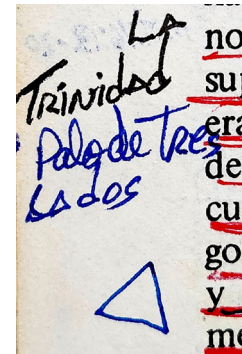 LA
TRINIDAD
Palo de Tres
LADOS
no
sup
era
de
cu
go
y
me